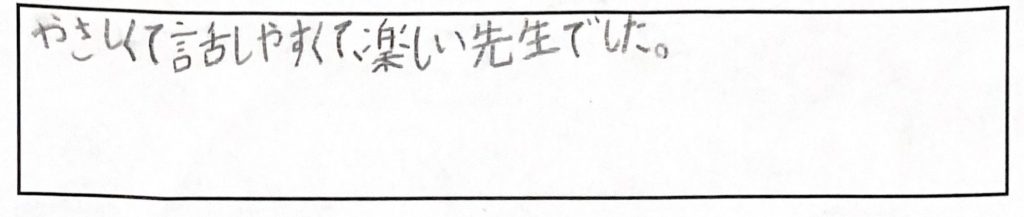 やさしくて話しやすくて、楽しい先生でした。